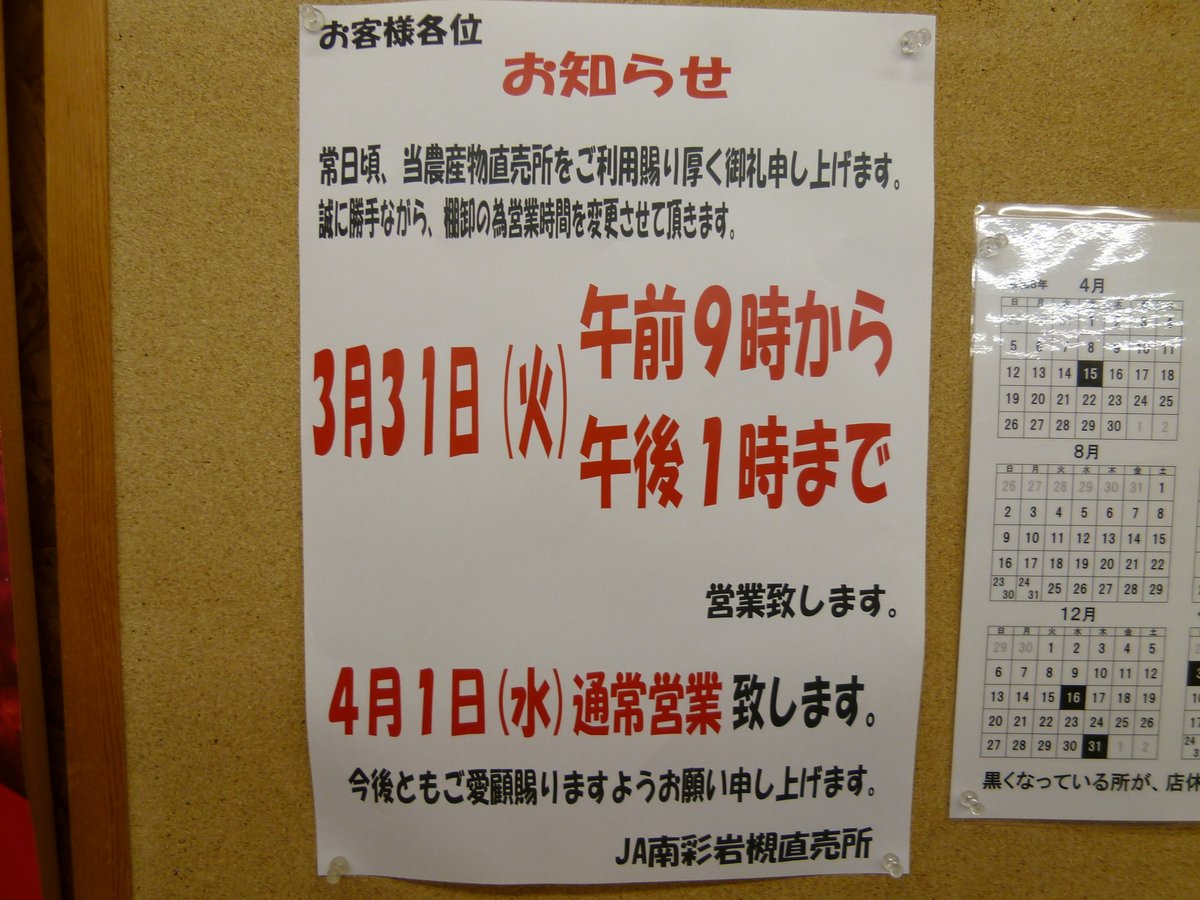 お客様各位
お知らせ
常日頃、当農産物直売所をご利用賜り厚く御礼申し上げます。
誠に勝手ながら、棚卸の為営業時間を変更させて頂きます。
3月31日（火）
午前９時から
午後１時まで
営業致します。
４月１日（水）通常営業 致します。
今後ともご愛顧賜りますようお願い申し上げます。
JA南彩岩槻直売所
年 4月
日 月 火 水 木 金 土
1 2 3 4
5 6 7 8 9 10 11
12 13 14 15 16 17 18
19 20 21 22 23 24 25
26 27 28 29 30 1 2
8月
日 月 火 水 木 金 土
26 27 28 29 30 31 1
2 3 4 5 6 7 8
9 10 11 12 13 14 15
16 17 18 19 20 21 22
23 30 24 31 25 26 27 28 29
12月
日 月 火 水 木 金 土
29 30 1 2 3 4 5
6 7 8 9 10 11 12
13 14 15 16 17 18 19
20 21 22 23 24 25 26
27 28 29 30 31 1 2
黒くなっている所が、店休